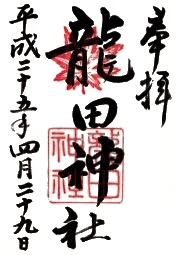 奉拝
龍田神社
龍田神社
平成二十五年四月二十九日